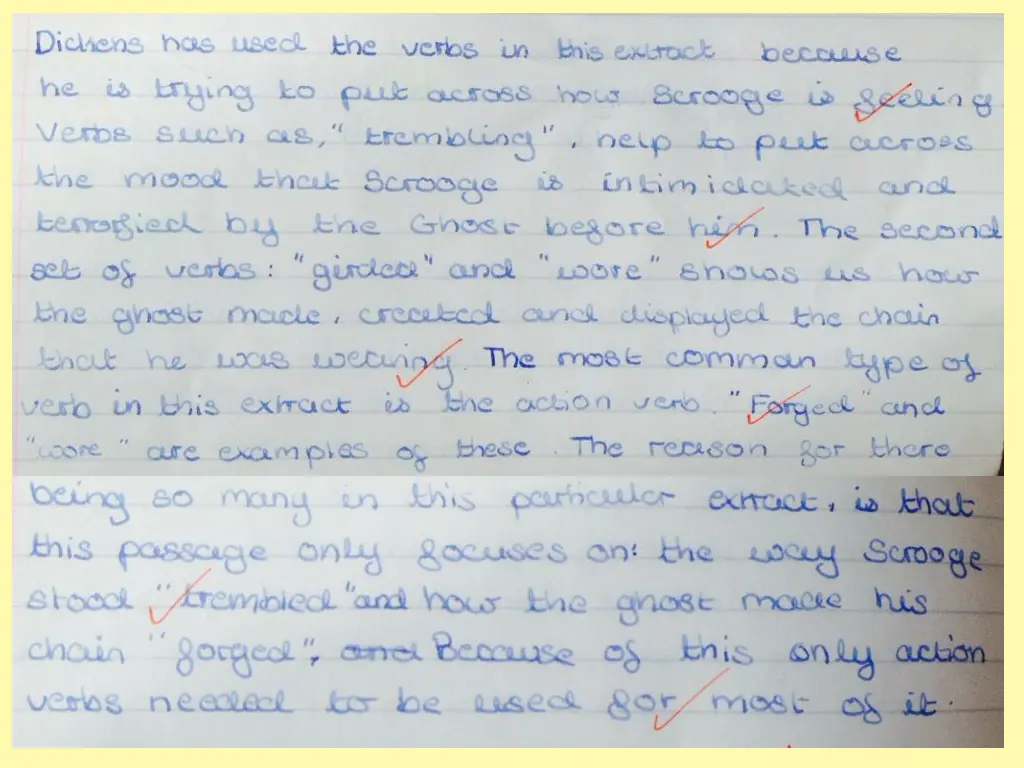 Dickens has used the verbs in this extract because
he is trying to put across how Scrooge is feeling
Verbs such as, "trembling", help to put across
the mood that Scrooge is intimidated and
terrofied by the Ghost before him. The second
set of verbs: "girded" and "wore" shows us how
the ghost made, created and displayed the chain
that he was wearing. The most comman type of
verb in this extract is the action verb. "Forged" and
"wore" are examples of these. The reason for there
being so many in this particular extract, is that
this passage only focuses on: the way Scrooge
stood "trembled" and how the ghost made his
chain "forged", and Because of this only action
verbs needed to be used for most of it.